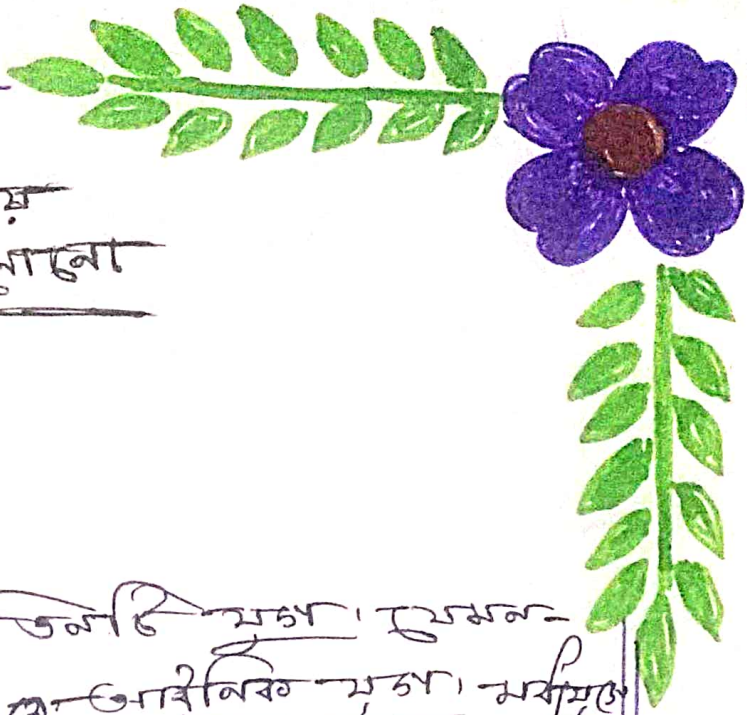 য়
নো
তিনটি যুগ। যেমন-
আধুনিক যুগ। মধ্যযুগে